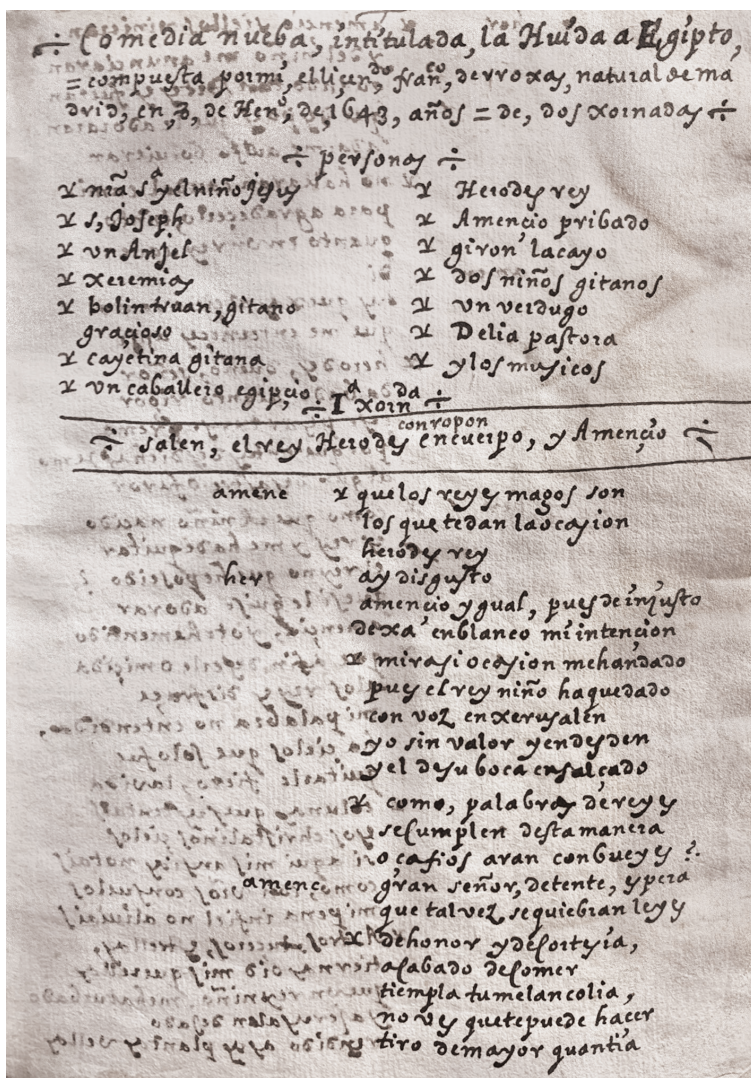 ÷ Comedia nueba, intitulada, la Huída a Egipto,
= compuesta por mi, el liçen.do fran.co, de rroxas, natural de ma
drid, en, 3, de Hen.o, de 1643, años = de, dos xornadas ÷
÷ personas ÷
nra sª y el niño jesus
s, Joseph
vn Anjel
xeremias
bolin truan, gitano
graçioso
cayetina gitana
vn caballero egipcio,
Herodes rey
Amençio pribado
giron lacayo
dos niños gitanos
vn verdugo
Delia pastora
y los musicos
÷ Iª xorn.da ÷
÷ salen, el rey Herodes en cuerpo, con ropon y Amençio ÷
amenc que los reyes magos son
los que te dan la ocasion
herodes rey
her ay disgusto
amencio ygual, pues de injusto
dexa en blanco mi intencion
mira si ocasion me han dado
pues el rey niño ha quedado
con voz en xerusalen
yo sin valor y en desden
y el de su boca ensalcado
como, palabras de reyes
se cumplen desta manera
o cafios aran con bueyes?
amenc gran señor, detente, espera
que tal vez, se quiebran leyes
de honor y de cortesia,
acabado de comer
tiempla tu melancolia,
no ves que te puede hacer
tiro de mayor quantia